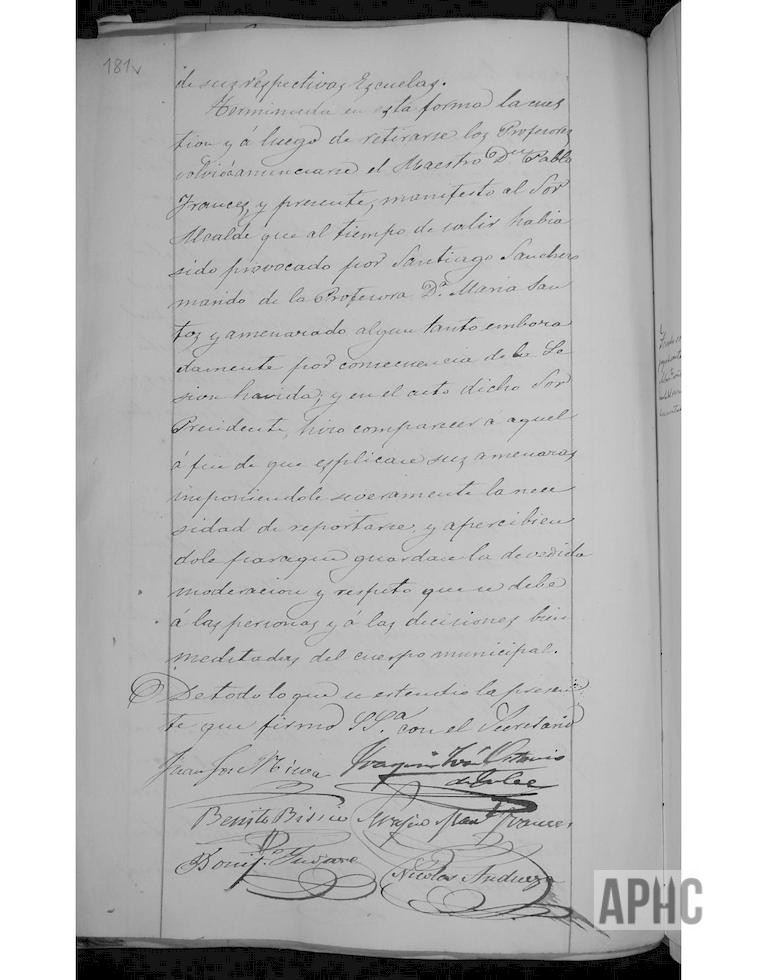 181v
de sus respectivas Escuelas.
Terminada en esta forma la cues
tion y á luego de retirarse los Profesores
volvió á anunciarse el Maestro Dn Pablo
Frances, y presente, manifestó al Sor
Alcalde que al tiempo de salir habia
sido provocado por Santiago Sanchez
marido de la Profesora Da Maria San
tos y amenazado algun tanto embora
damente por consecuencia de la Se
sion habida; y en el acto dicho Sor
Presidente, hizo comparecer á aquel
á fin de que esplicase sus amenazas
imponiendole severamente la nece
sidad de reportarse, y apercibien
dole para que guardase la devedida
moderacion y respeto que se debe
á las personas y á las decisiones bien
meditadas del cuerpo municipal.
De todo lo que se estendio la presen
te que firmó SSa con el Secretario
Juan José Joaquin Antonio
Benito Frances
Nicolas Andueza
APHC